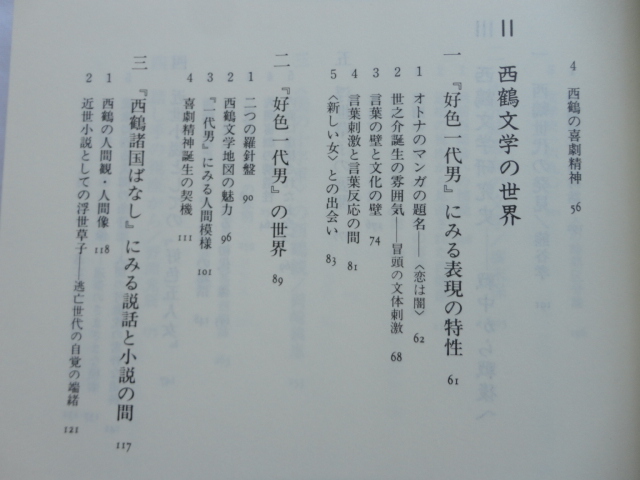 4 西鶴の喜劇精神 56
II 西鶴文学の世界
一 『好色一代男』にみる表現の特性 61
1 オトナのマンガの題名——〈恋は闇〉 62
2 世之介誕生の雰囲気——冒頭の文体刺激 68
3 言葉の壁と文化の壁 74
4 言葉刺激と言葉反応の間 81
5 〈新しい女〉との出会い 83
二 『好色一代男』の世界 89
1 二つの羅針盤 90
2 西鶴文学地図の魅力 96
3 『一代男』にみる人間模様 101
4 喜劇精神誕生の契機 111
三 『西鶴諸国ばなし』にみる説話と小説の間 117
1 西鶴の人間観・人間像 118
2 近世小説としての浮世草子——逃亡世代の自覚の端緒 121